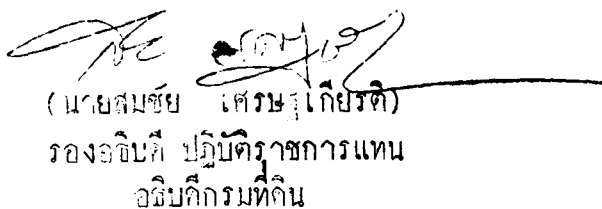 (นายสมชัย เศรษฐเกียรติ)
รองอธิบดี ปฏิบัติราชการแทน
อธิบดีกรมที่ดิน